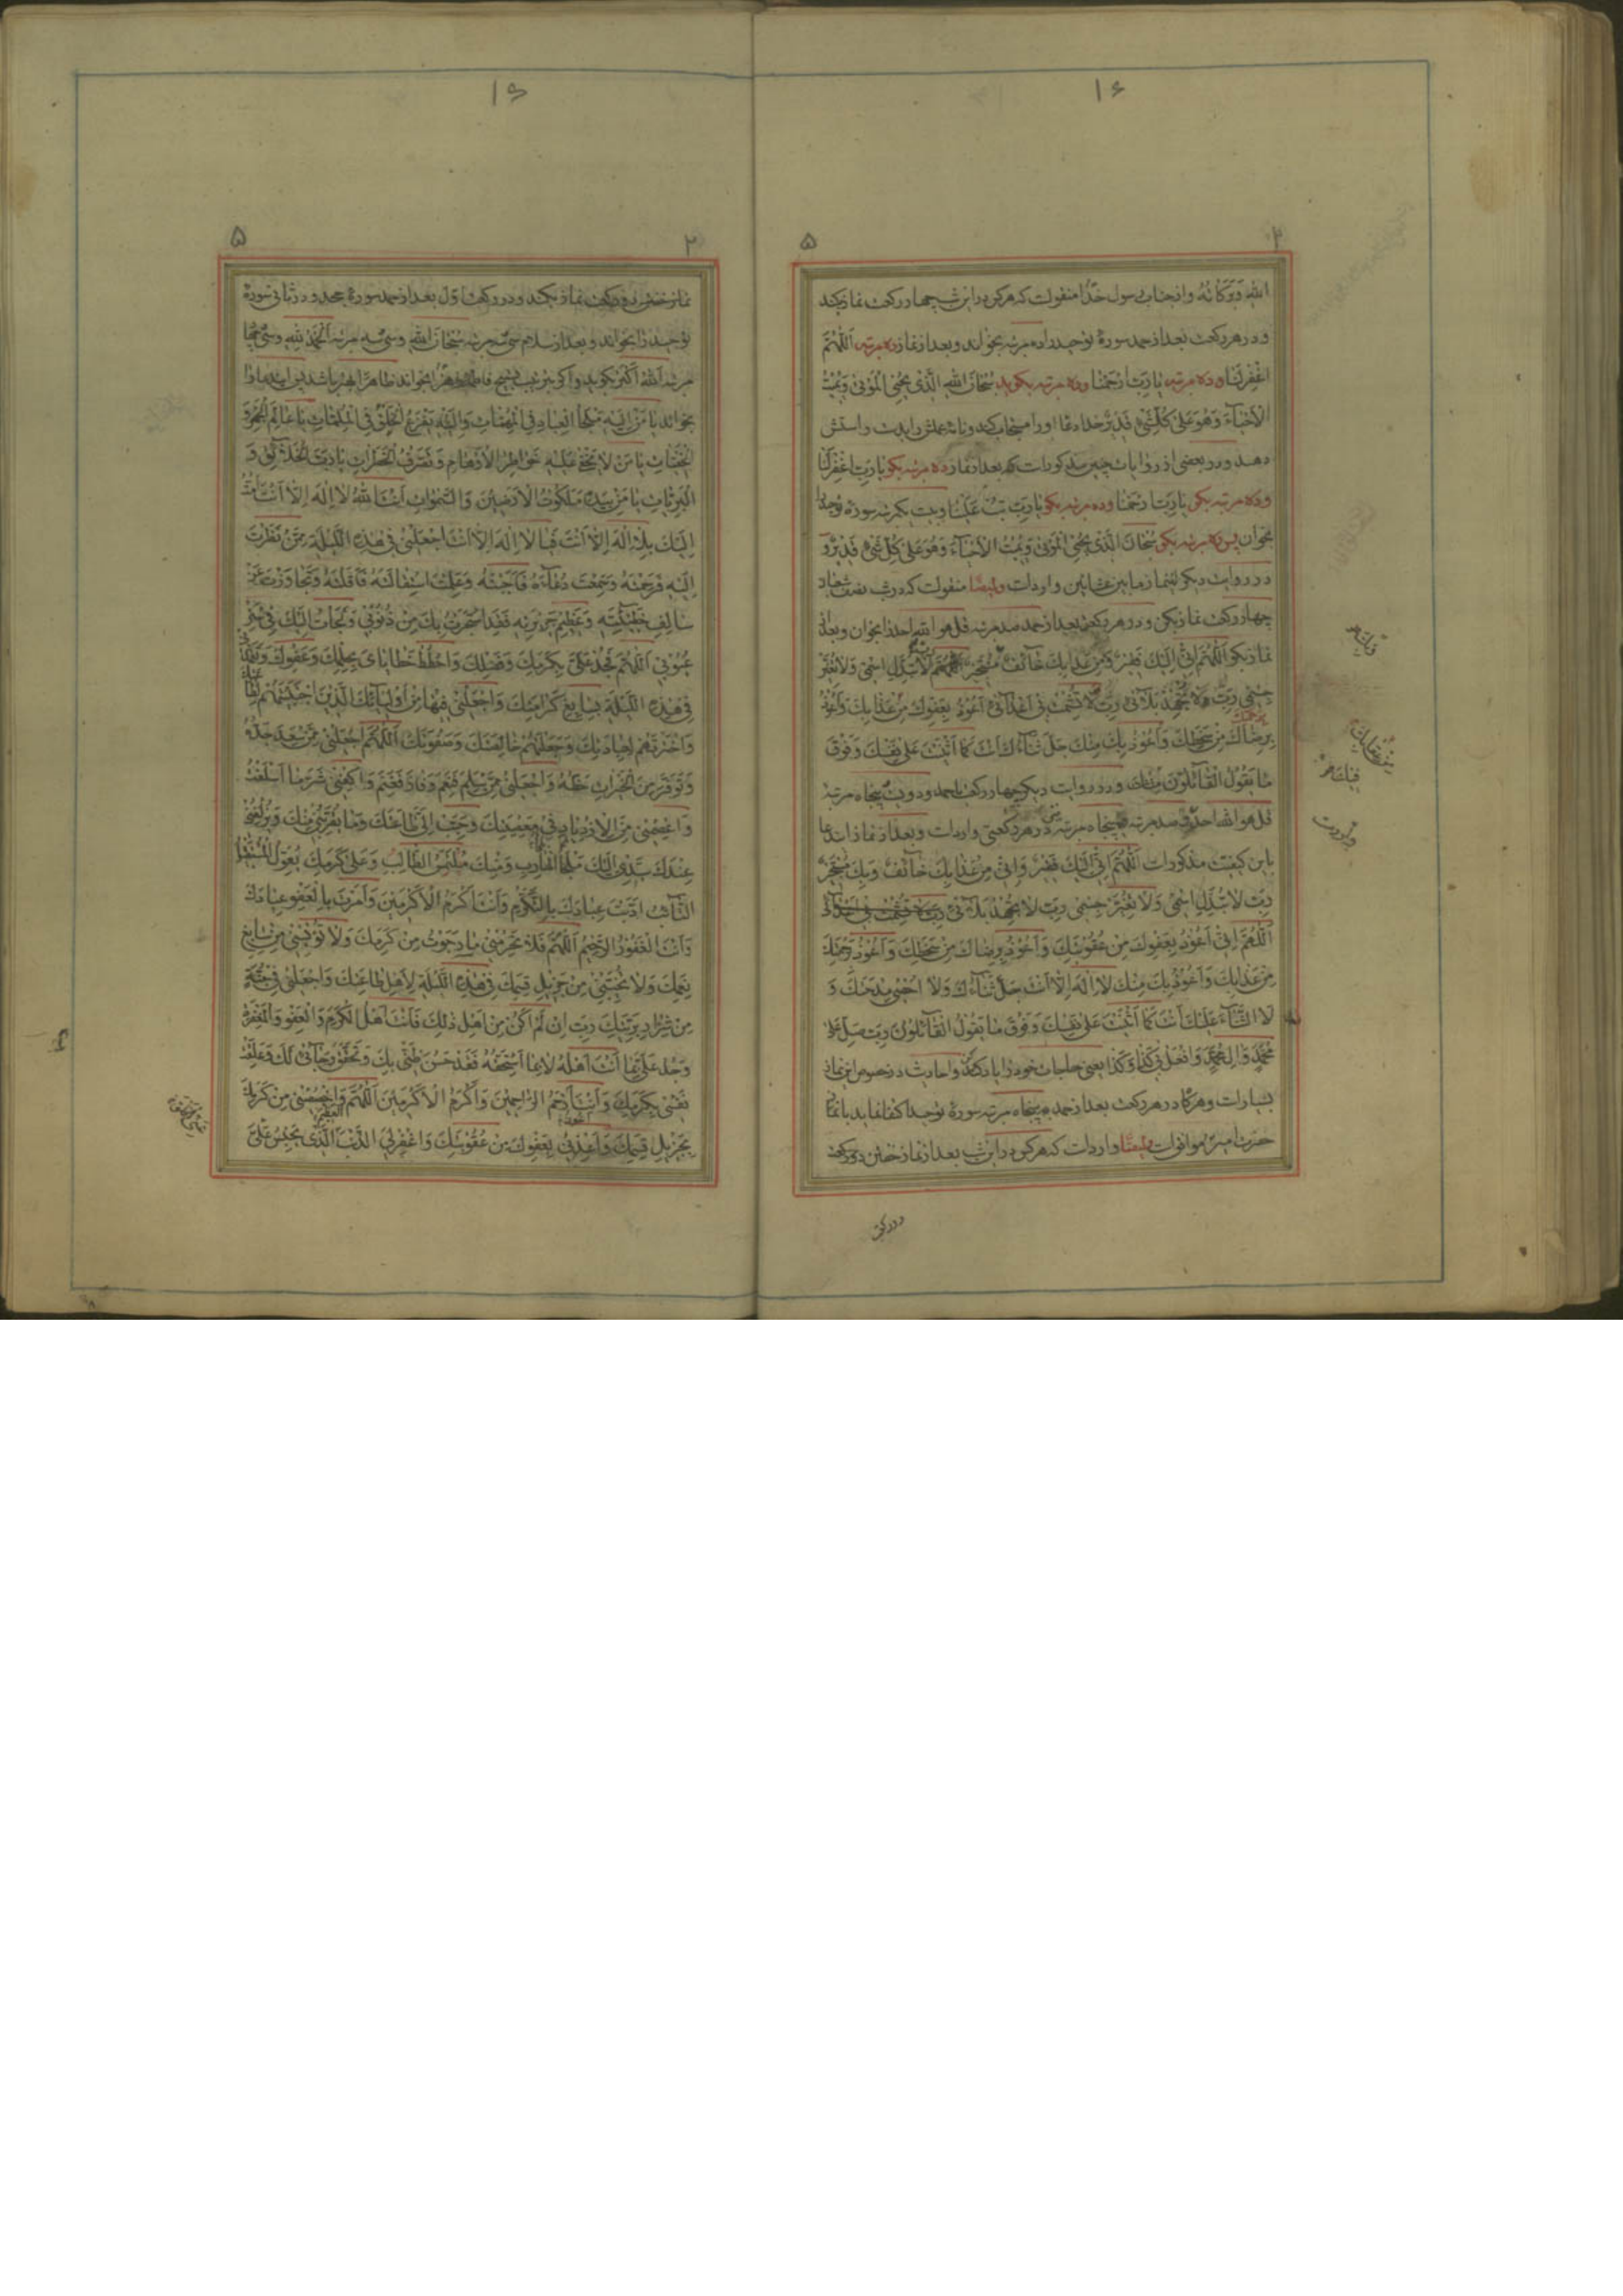 الله و برکاته و از جناب رسول خدا منقولست که هر که در این شب چهار رکعت نماز بکند
و در هر رکعت بعد از حمد سورهٔ توحید را ده مرتبه بخواند و بعد از نماز ده مرتبه اَللّهُمَّ
اغْفِرْ لَنا و ده مرتبه یا رَبِّ ارْحَمْنا و ده مرتبه بگوید سُبْحانَ اللهِ الَّذی یُحْیِی الْمَوْتی وَ یُمیتُ
الْاَحْیآءَ وَ هُوَ عَلی کُلِّ شَیْءٍ قَدیرٌ خدا دعای او را مستجاب کند و نامهٔ عملش را بدست راستش
دهد و در بعضی از روایات چنین مذکور است که بعد از نماز ده مرتبه بگو یا رَبِّ اغْفِرْ لَنا
و ده مرتبه بگو یا رَبِّ ارْحَمْنا و ده مرتبه بگو یا رَبِّ تُبْ عَلَیْنا و بیست یکمرتبه سورهٔ توحید را
بخوان پس ده مرتبه بگو سُبْحانَ الَّذی یُحْیِی الْمَوْتی وَ یُمیتُ الْاَحْیآءَ وَ هُوَ عَلی کُلِّ شَیْءٍ قَدیرٌ و
در روایت دیگر اینماز مابین عشائین وارد است و ایضًا منقولست که در شب نصف شعبان
چهار رکعت نماز بکن و در هر رکعت بعد از حمد صد مرتبه قل هو الله احد را بخوان و بعد از
نماز بگو اَللّهُمَّ اِنّی اِلَیْکَ فَقیرٌ وَ مِنْ عَذابِکَ خآئِفٌ مُسْتَجیرٌ لا تُبَدِّلِ اسْمی وَ لا تُغَیِّرْ
جِسْمی رَبِّ وَ لا تُجْهِدْ بَلآئی رَبِّ لا تُشْمِتْ بی اَعْدآئی اَعُوذُ بِعَفْوِکَ مِنْ عَذابِکَ وَ اَعُوذُ
بِرِضاکَ مِنْ سَخَطِکَ وَ اَعُوذُ بِکَ مِنْکَ جَلَّ ثَنآؤُکَ اَنْتَ کَما اَثْنَیْتَ عَلی نَفْسِکَ وَ فَوْقَ
ما یَقُولُ الْقآئِلُونَ و در روایت دیگر چهار رکعت احمد و دویست پنجاه مرتبه
قل هو الله احد در هر رکعتی وارد است و بعد از نماز این دعا
باین کیفیت مذکور است اَللّهُمَّ اِنّی اِلَیْکَ فَقیرٌ وَ اِنّی مِنْ عَذابِکَ خآئِفٌ وَ بِکَ مُسْتَجیرٌ
رَبِّ لا تُبَدِّلِ اسْمی وَ لا تُغَیِّرْ جِسْمی رَبِّ لا تُجْهِدْ بَلآئی
اَللّهُمَّ اِنّی اَعُوذُ بِعَفْوِکَ مِنْ عُقُوبَتِکَ وَ اَعُوذُ بِرِضاکَ مِنْ سَخَطِکَ وَ اَعُوذُ بِرَحْمَتِکَ
مِنْ عَذابِکَ وَ اَعُوذُ بِکَ مِنْکَ لا اِلهَ اِلّا اَنْتَ جَلَّ ثَنآؤُکَ وَ لا اُحْصی مِدْحَتَکَ وَ
لَا الثَّنآءَ عَلَیْکَ اَنْتَ کَما اَثْنَیْتَ عَلی نَفْسِکَ وَ فَوْقَ ما یَقُولُ الْقآئِلُونَ رَبِّ صَلِّ عَلی
مُحَمَّدٍ وَ الِ مُحَمَّدٍ وَ افْعَلْ بی کَذا وَ کَذا یعنی حاجات خود را یاد کند و احادیث در خصوص این نماز
بسیار است و هرگاه در هر رکعت بعد از حمد پنجاه مرتبه سورهٔ توحید اکتفا نماید با نماز
حضرت امیر موافق است و ایضًا وارد است که هر که در این شب بعد از نماز خفتن دو رکعت
دو رکعت
نماز خفتن دو رکعت نماز بکند و در رکعت اوّل بعد از حمد سورهٔ جحد و در ثانی سورهٔ
توحید را بخواند و بعد از سلام سی سه مرتبه سُبْحانَ اللهِ و سی سه مرتبه اَلْحَمْدُ لِلّهِ و سی چهار
مرتبه اَللهُ اَکْبَرُ بگوید و اگر بترتیب تسبیح فاطمه زهرا بخواند ظاهرًا بهتر باشد پس این دعا را
بخواند یا مَنْ اِلَیْهِ مَلْجَأُ الْعِبادِ فِی الْمُهِمّاتِ وَ اِلَیْهِ یَفْزَعُ الْخَلْقُ فِی الْمُلِمّاتِ یا عالِمَ الْجَهْرِ وَ
الْخَفِیّاتِ یا مَنْ لا تَخْفی عَلَیْهِ خَواطِرُ الْاَوْهامِ وَ تَصَرُّفُ الْخَطَراتِ یا رَبَّ الْخَلآئِقِ وَ
الْبَرِیّاتِ یا مَنْ بِیَدِهِ مَلَکُوتُ الْاَرَضینَ وَ السَّمواتِ اَنْتَ اللهُ لا اِلهَ اِلّا اَنْتَ اَمُتُّ
اِلَیْکَ بِلا اِلهَ اِلّا اَنْتَ فَیا لا اِلهَ اِلّا اَنْتَ اجْعَلْنی فی هذِهِ اللَّیْلَةِ مِمَّنْ نَظَرْتَ
اِلَیْهِ فَرَحِمْتَهُ وَ سَمِعْتَ دُعآءَهُ فَاَجَبْتَهُ وَ عَلِمْتَ اسْتِقالَتَهُ فَاَقَلْتَهُ وَ تَجاوَزْتَ عَنْ
سالِفِ خَطیئَتِهِ وَ عَظیمِ جَریرَتِهِ فَقَدِ اسْتَجَرْتُ بِکَ مِنْ ذُنُوبی وَ لَجَأْتُ اِلَیْکَ فی سَتْرِ
عُیُوبی اَللّهُمَّ فَجُدْ عَلَیَّ بِکَرَمِکَ وَ فَضْلِکَ وَ احْطُطْ خَطایایَ بِحِلْمِکَ وَ عَفْوِکَ وَ تَغَمَّدْنی
فی هذِهِ اللَّیْلَةِ بِسابِغِ کَرامَتِکَ وَ اجْعَلْنی فیها مِنْ اَوْلِیآئِکَ الَّذینَ اجْتَبَیْتَهُمْ لِطاعَتِکَ
وَ اخْتَرْتَهُمْ لِعِبادَتِکَ وَ جَعَلْتَهُمْ خالِصَتَکَ وَ صَفْوَتَکَ اَللّهُمَّ اجْعَلْنی مِمَّنْ سَعَدَ جَدُّهُ
وَ تَوَفَّرَ مِنَ الْخَیْراتِ حَظُّهُ وَ اجْعَلْنی مِمَّنْ سَلِمَ فَنَعِمَ وَ فازَ فَغَنِمَ وَ اکْفِنی شَرَّ ما اَسْلَفْتُ
وَ اعْصِمْنی مِنَ الْاِزْدِیادِ فی مَعْصِیَتِکَ وَ حَبِّبْ اِلَیَّ طاعَتَکَ وَ ما یُقَرِّبُنی مِنْکَ وَ یُزْلِفُنی
عِنْدَکَ سَیِّدی اِلَیْکَ مَلْجَأُ الْهارِبِ وَ مِنْکَ مُلْتَمَسُ الطّالِبِ وَ عَلی کَرَمِکَ یُعَوِّلُ الْمُسْتَقیلُ
التّآئِبُ اَدَّبْتَ عِبادَکَ بِالتَّکَرُّمِ وَ اَنْتَ اَکْرَمُ الْاَکْرَمینَ وَ اَمَرْتَ بِالْعَفْوِ عِبادَکَ
وَ اَنْتَ الْغَفُورُ الرَّحیمُ اَللّهُمَّ فَلا تَحْرِمْنی ما رَجَوْتُ مِنْ کَرَمِکَ وَ لا تُؤْیِسْنی مِنْ سابِغِ
نِعَمِکَ وَ لا تُخَیِّبْنی مِنْ جَزیلِ قِسَمِکَ فی هذِهِ اللَّیْلَةِ لِاَهْلِ طاعَتِکَ وَ اجْعَلْنی فی جُنَّةٍ
مِنْ شِرارِ بَرِیَّتِکَ رَبِّ اِنْ لَمْ اَکُنْ مِنْ اَهْلِ ذلِکَ فَاَنْتَ اَهْلُ الْکَرَمِ وَ الْعَفْوِ وَ الْمَغْفِرَةِ
وَ جُدْ عَلَیَّ بِما اَنْتَ اَهْلُهُ لا بِما اَسْتَحِقُّهُ فَقَدْ حَسُنَ ظَنّی بِکَ وَ تَحَقَّقَ رَجآئی لَکَ وَ عَلِقَتْ
نَفْسی بِکَرَمِکَ وَ اَنْتَ اَرْحَمُ الرّاحِمینَ وَ اَکْرَمُ الْاَکْرَمینَ اَللّهُمَّ وَ اخْصُصْنی مِنْ کَرَمِکَ
بِجَزیلِ قِسَمِکَ وَ اَعُوذُ بِعَفْوِکَ مِنْ عُقُوبَتِکَ وَ اغْفِرْ لِیَ الذَّنْبَ الَّذی یَحْبِسُ عَلَیَّ